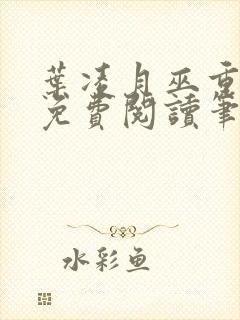 葉凌月巫重
免費閱讀筆
水彩魚